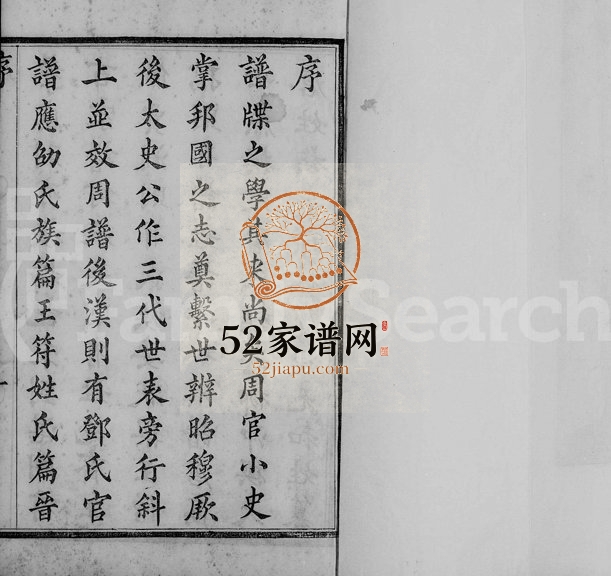 序
譜牒之學其来尚矣周官小史
掌邦國之志奠繫世辨昭穆厥
後太史公作三代世表旁行斜
上並效周譜後漢則有鄧氏官
譜應劭氏族篇王符姓氏篇晉
序
一
FamilySearch
52家谱网
52jiapu.com